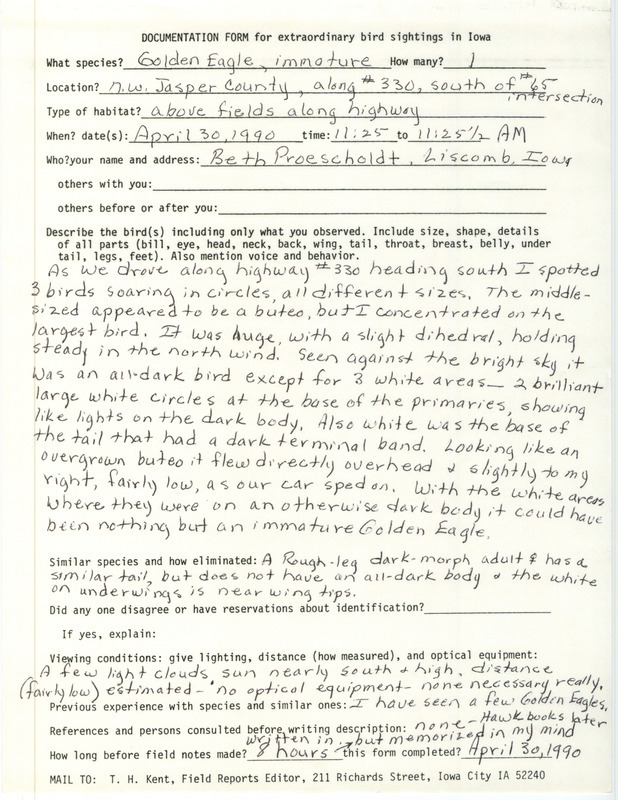 DOCUMENTATION FORM for extraordinary bird sightings in Iowa
What species? Golden Eagle, immature How many? 1
Location? n.w. Jasper County, along #330, south of #65 intersection
Type of habitat? above fields along highway
When? date(s): April 30, 1990 time: 11:25 to 11:25½ AM
Who?your name and address: Beth Proescholdt, Liscomb, Iowa
others with you:
others before or after you:
Describe the bird(s) including only what you observed. Include size, shape, details
of all parts (bill, eye, head, neck, back, wing, tail, throat, breast, belly, under
tail, legs, feet). Also mention voice and behavior.
As we drove along highway #330 heading south I spotted
3 birds soaring in circles, all different sizes. The middle-
sized appeared to be a buteo, but I concentrated on the
largest bird. It was huge, with a slight dihedral, holding
steady in the north wind. Seen against the bright sky it
was an all-dark bird except for 3 white areas— 2 brilliant
large white circles at the base of the primaries, showing
like lights on the dark body. Also white was the base of
the tail that had a dark terminal band. Looking like an
overgrown buteo it flew directly overhead & slightly to my
right, fairly low, as our car sped on. With the white areas
where they were on an otherwise dark body it could have
been nothing but an immature Golden Eagle.
Similar species and how eliminated: A Rough-leg dark-morph adult ♀ has a
similar tail, but does not have an all-dark body & the white
on underwings is near wing tips.
Did any one disagree or have reservations about identification?
If yes, explain:
Viewing conditions: give lighting, distance (how measured), and optical equipment:
A few light clouds, sun nearly south & high, distance
(fairly low) estimated - no optical equipment - none necessary really.
Previous experience with species and similar ones: I have seen a few Golden Eagles.
References and persons consulted before writing description: none - Hawk books later
written in, but memorized in my mind
How long before field notes made? 8 hours this form completed? April 30, 1990
MAIL TO: T. H. Kent, Field Reports Editor, 211 Richards Street, Iowa City IA 52240